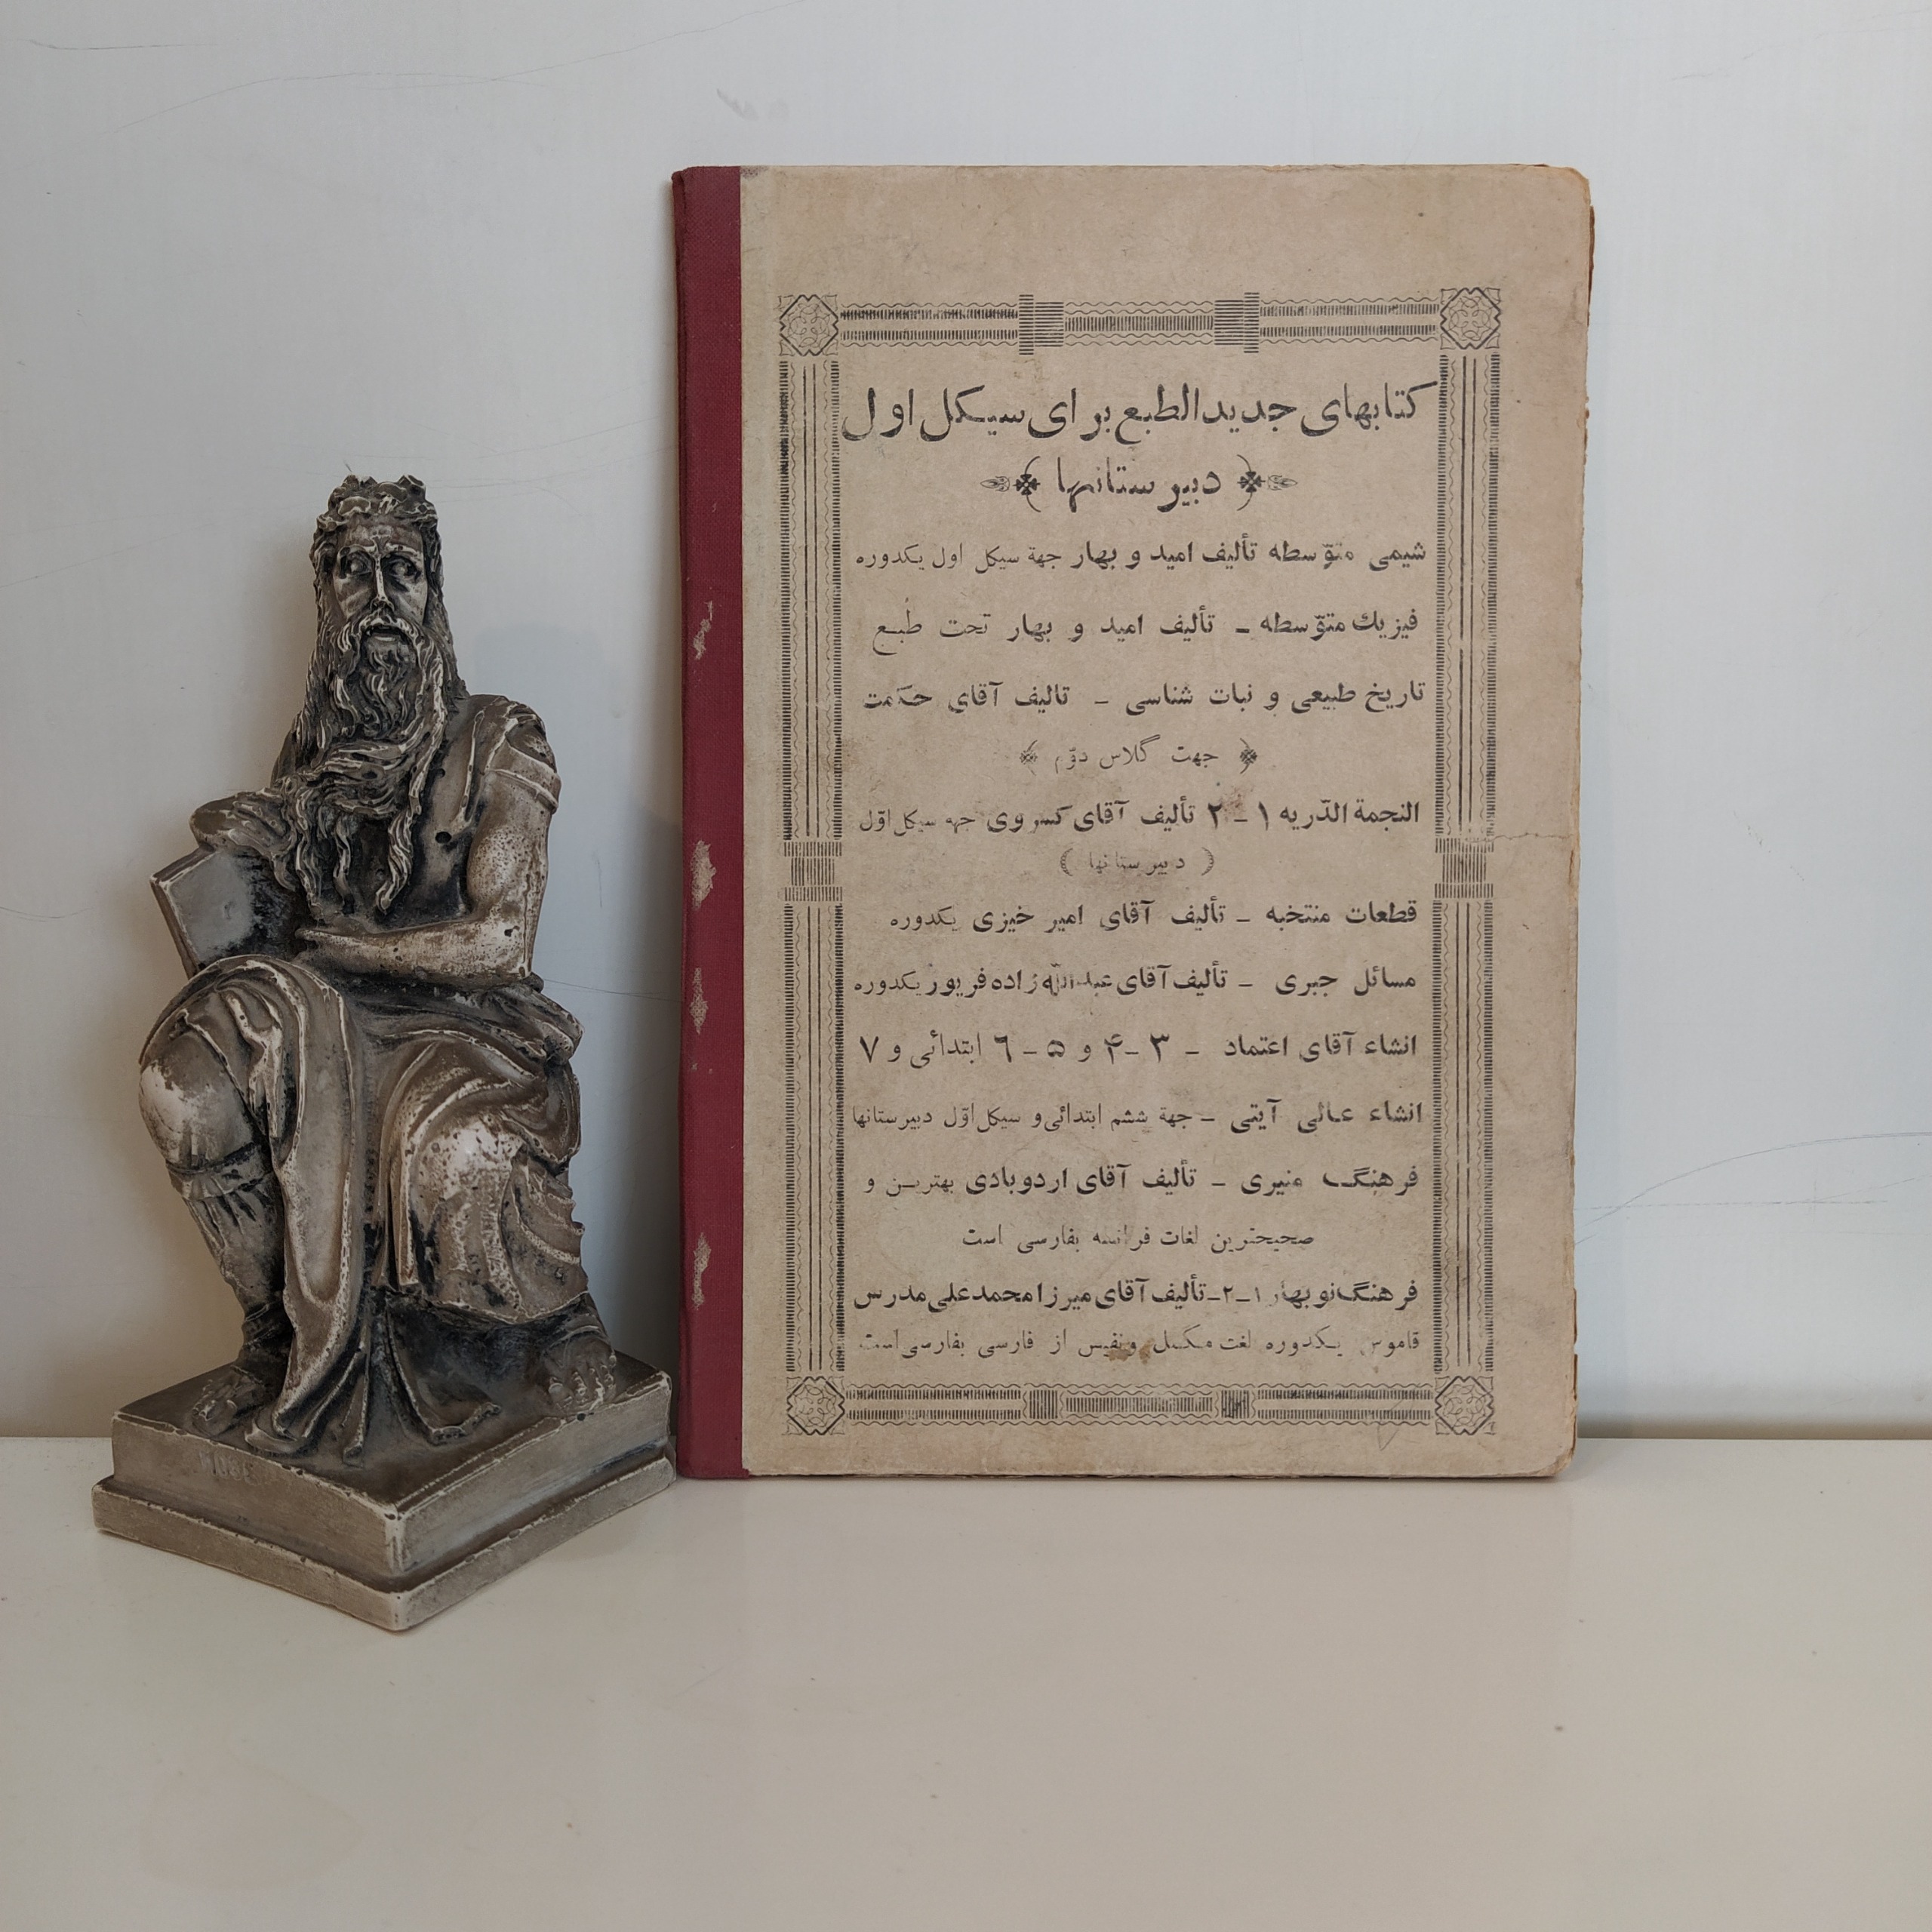 کتابهای جدیدالطبع برای سیکل اول
دبیرستانها
شیمی متوّسطه تألیف امید و بهار جهة سیکل اول یکدوره
فیزیك متوّسطه ـ تألیف امید و بهار تحت طبع
تاریخ طبیعی و نبات شناسی ـ تالیف آقای حکمت
جهت کلاس دوّم
النجمة الدّریه ۱ـ۲ تألیف آقای کسروی جهه سیکل اوّل
( دبیرستانها )
قطعات منتخبه ـ تألیف آقای امیر خیزی یکدوره
مسائل جبری ـ تألیف آقای عبدالله زاده فریور یکدوره
انشاء آقای اعتماد ـ ۳ـ۴ و ۵ـ۶ ابتدائی و ۷
انشاء عالی آیتی ـ جهة ششم ابتدائی و سیکل اوّل دبیرستانها
فرهنگ منیری ـ تألیف آقای اردوبادی بهترین و
صحیحترین لغات فرانسه بفارسی است
فرهنگ نوبهار ۱ـ۲ـ تألیف آقای میرزا محمدعلی مدرس
قاموس یکدوره لغت مکمل ونفیس از فارسی بفارسی است